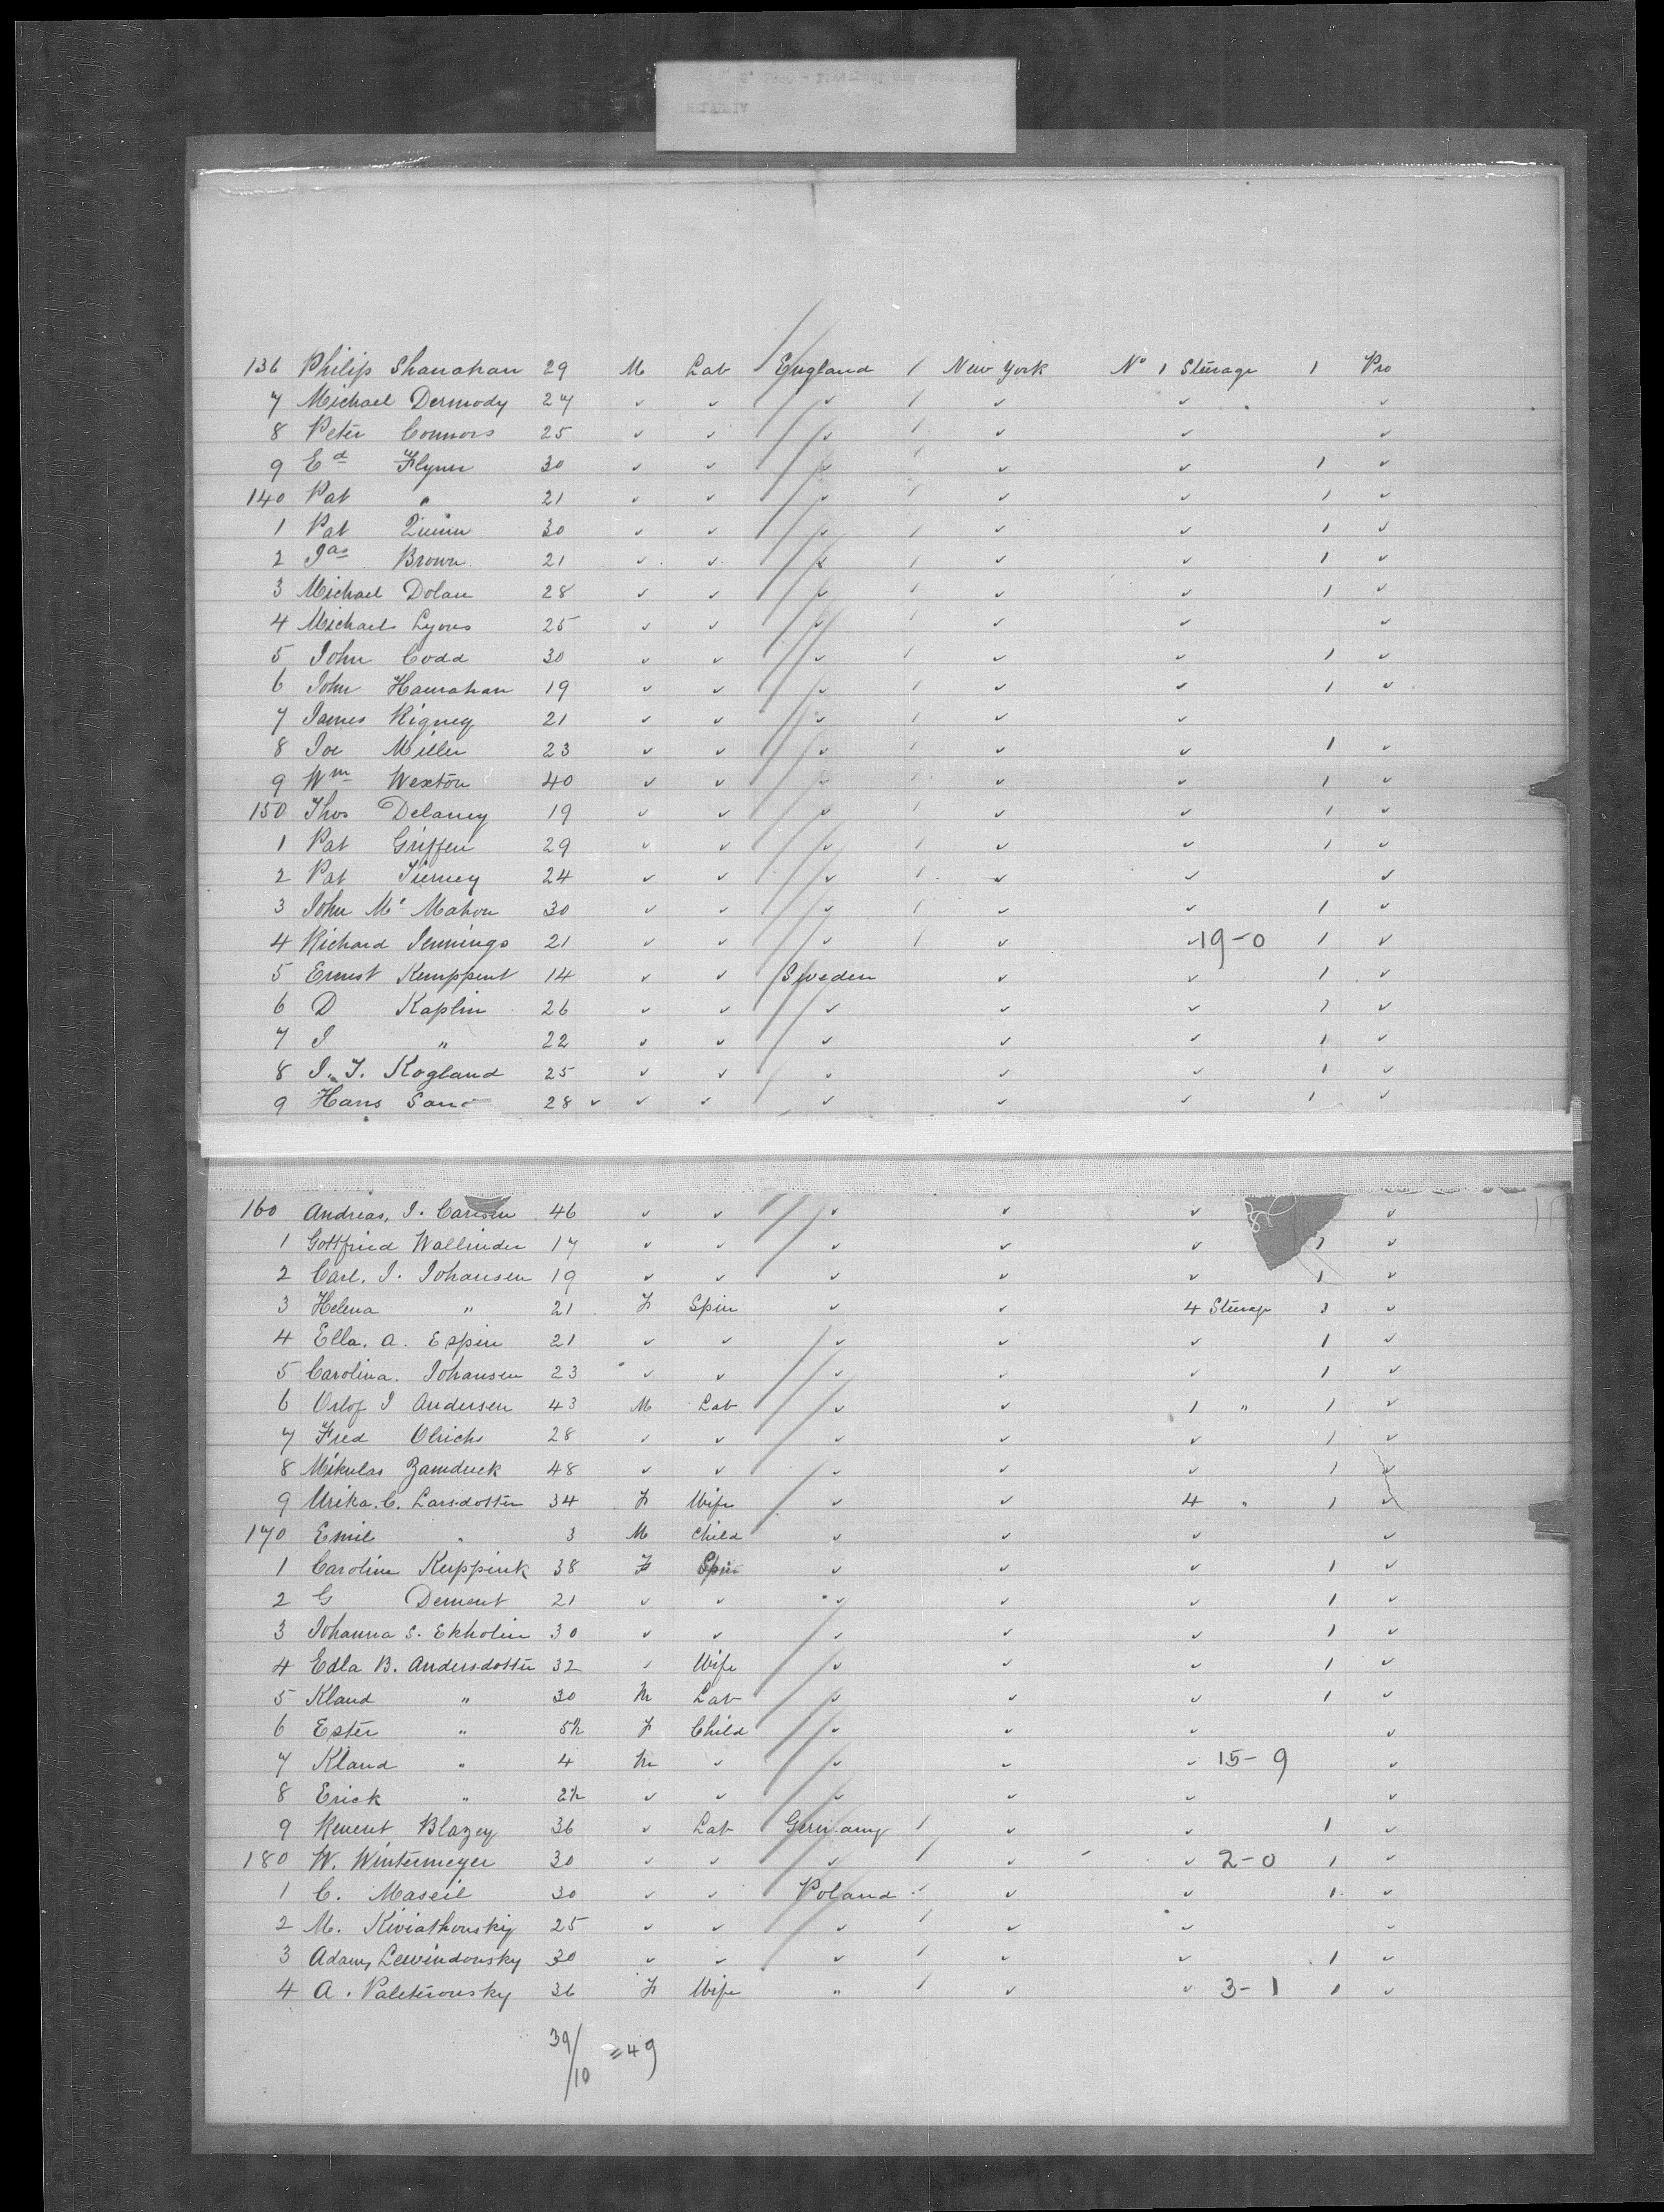 136 Philip Shanahan 29 M Lab England / New York No 1 Steerage 1 Pro
7 Michael Dermody 27 ✓ ✓ ✓ / ✓ ✓ ✓
8 Peter Connors 25 ✓ ✓ ✓ / ✓ ✓ ✓
9 Ed Flynn 30 ✓ ✓ ✓ / ✓ ✓ 1 ✓
140 Pat " 21 ✓ ✓ ✓ / ✓ ✓ 1 ✓
1 Pat Quinn 30 ✓ ✓ ✓ / ✓ ✓ 1 ✓
2 Jas Brown 21 ✓ ✓ ✓ / ✓ ✓ 1 ✓
3 Michael Dolan 28 ✓ ✓ ✓ / ✓ ✓ 1 ✓
4 Michael Lyons 25 ✓ ✓ ✓ / ✓ ✓ ✓
5 John Codd 30 ✓ ✓ ✓ / ✓ ✓ 1 ✓
6 John Hanrahan 19 ✓ ✓ ✓ / ✓ ✓ 1 ✓
7 James Rigney 21 ✓ ✓ ✓ / ✓ ✓
8 Joe Miller 23 ✓ ✓ ✓ / ✓ ✓ 1 ✓
9 Wm Wexton 40 ✓ ✓ ✓ / ✓ ✓ 1 ✓
150 Thos Delaney 19 ✓ ✓ ✓ / ✓ ✓ 1 ✓
1 Pat Griffen 29 ✓ ✓ ✓ / ✓ ✓ 1 ✓
2 Pat Tierney 24 ✓ ✓ ✓ / ✓ ✓ ✓
3 John Mc Mahon 30 ✓ ✓ ✓ / ✓ ✓ 1 ✓
4 Richard Jennings 21 ✓ ✓ ✓ / ✓ ✓ 19-0 1 ✓
5 Ernest Kemppent 14 ✓ ✓ Sweden ✓ ✓ 1 ✓
6 D Kaplin 26 ✓ ✓ ✓ ✓ ✓ 1 ✓
7 J " 22 ✓ ✓ ✓ ✓ ✓ 1 ✓
8 J. J. Kogland 25 ✓ ✓ ✓ ✓ ✓ 1 ✓
9 Hans 28 ✓ ✓ ✓ ✓ ✓ ✓ 1 ✓
160 Andreas, J. Carlsen 46 ✓ ✓ ✓ ✓ ✓ ✓
1 Gottfried Wallinder 17 ✓ ✓ ✓ ✓ ✓ 1 ✓
2 Carl. J. Johansen 19 ✓ ✓ ✓ ✓ ✓ 1 ✓
3 Helena " 21 F Spin ✓ ✓ 4 Steerage 1 ✓
4 Ella. A. Espin 21 ✓ ✓ ✓ ✓ ✓ 1 ✓
5 Carolina. Johansen 23 ✓ ✓ ✓ ✓ ✓ 1 ✓
6 Orlof J Andersen 43 M Lab ✓ ✓ 1 " 1 ✓
7 Fred Olrichs 28 ✓ ✓ ✓ ✓ ✓ 1 ✓
8 Mikulas Zamduck 48 ✓ ✓ ✓ ✓ ✓ 1 ✓
9 Urika. C. Larsdotter 34 F Wife ✓ ✓ 4 " 1 ✓
170 Emil " 3 M Child ✓ ✓ ✓ ✓
1 Carolina Kuppink 38 F Spin ✓ ✓ ✓ 1 ✓
2 G Dement 21 ✓ ✓ ✓ ✓ ✓ 1 ✓
3 Johanna S. Ekholm 30 ✓ ✓ ✓ ✓ ✓ 1 ✓
4 Edla B. Andersdotter 32 ✓ Wife ✓ ✓ ✓ 1 ✓
5 Kland " 30 M Lab ✓ ✓ ✓ 1 ✓
6 Ester " 5½ F Child ✓ ✓ ✓ ✓
7 Kland " 4 M ✓ ✓ ✓ ✓ 15-9 ✓
8 Erick " 2½ ✓ ✓ ✓ ✓ ✓ ✓
9 Blazey 36 ✓ Lab Germany / ✓ ✓ 1 ✓
180 W. Wintermeyer 30 ✓ ✓ ✓ / ✓ ✓ 2-0 1 ✓
1 C. Maseil 30 ✓ ✓ Poland / ✓ ✓ 1 ✓
2 M. Kiviathouskiy 25 ✓ ✓ ✓ / ✓ ✓ ✓
3 Adam Lewindousky 30 ✓ ✓ ✓ / ✓ ✓ 1 ✓
4 A. Paleterousky 36 F Wife " / ✓ ✓ 3-1 1 ✓
39/10 = 49